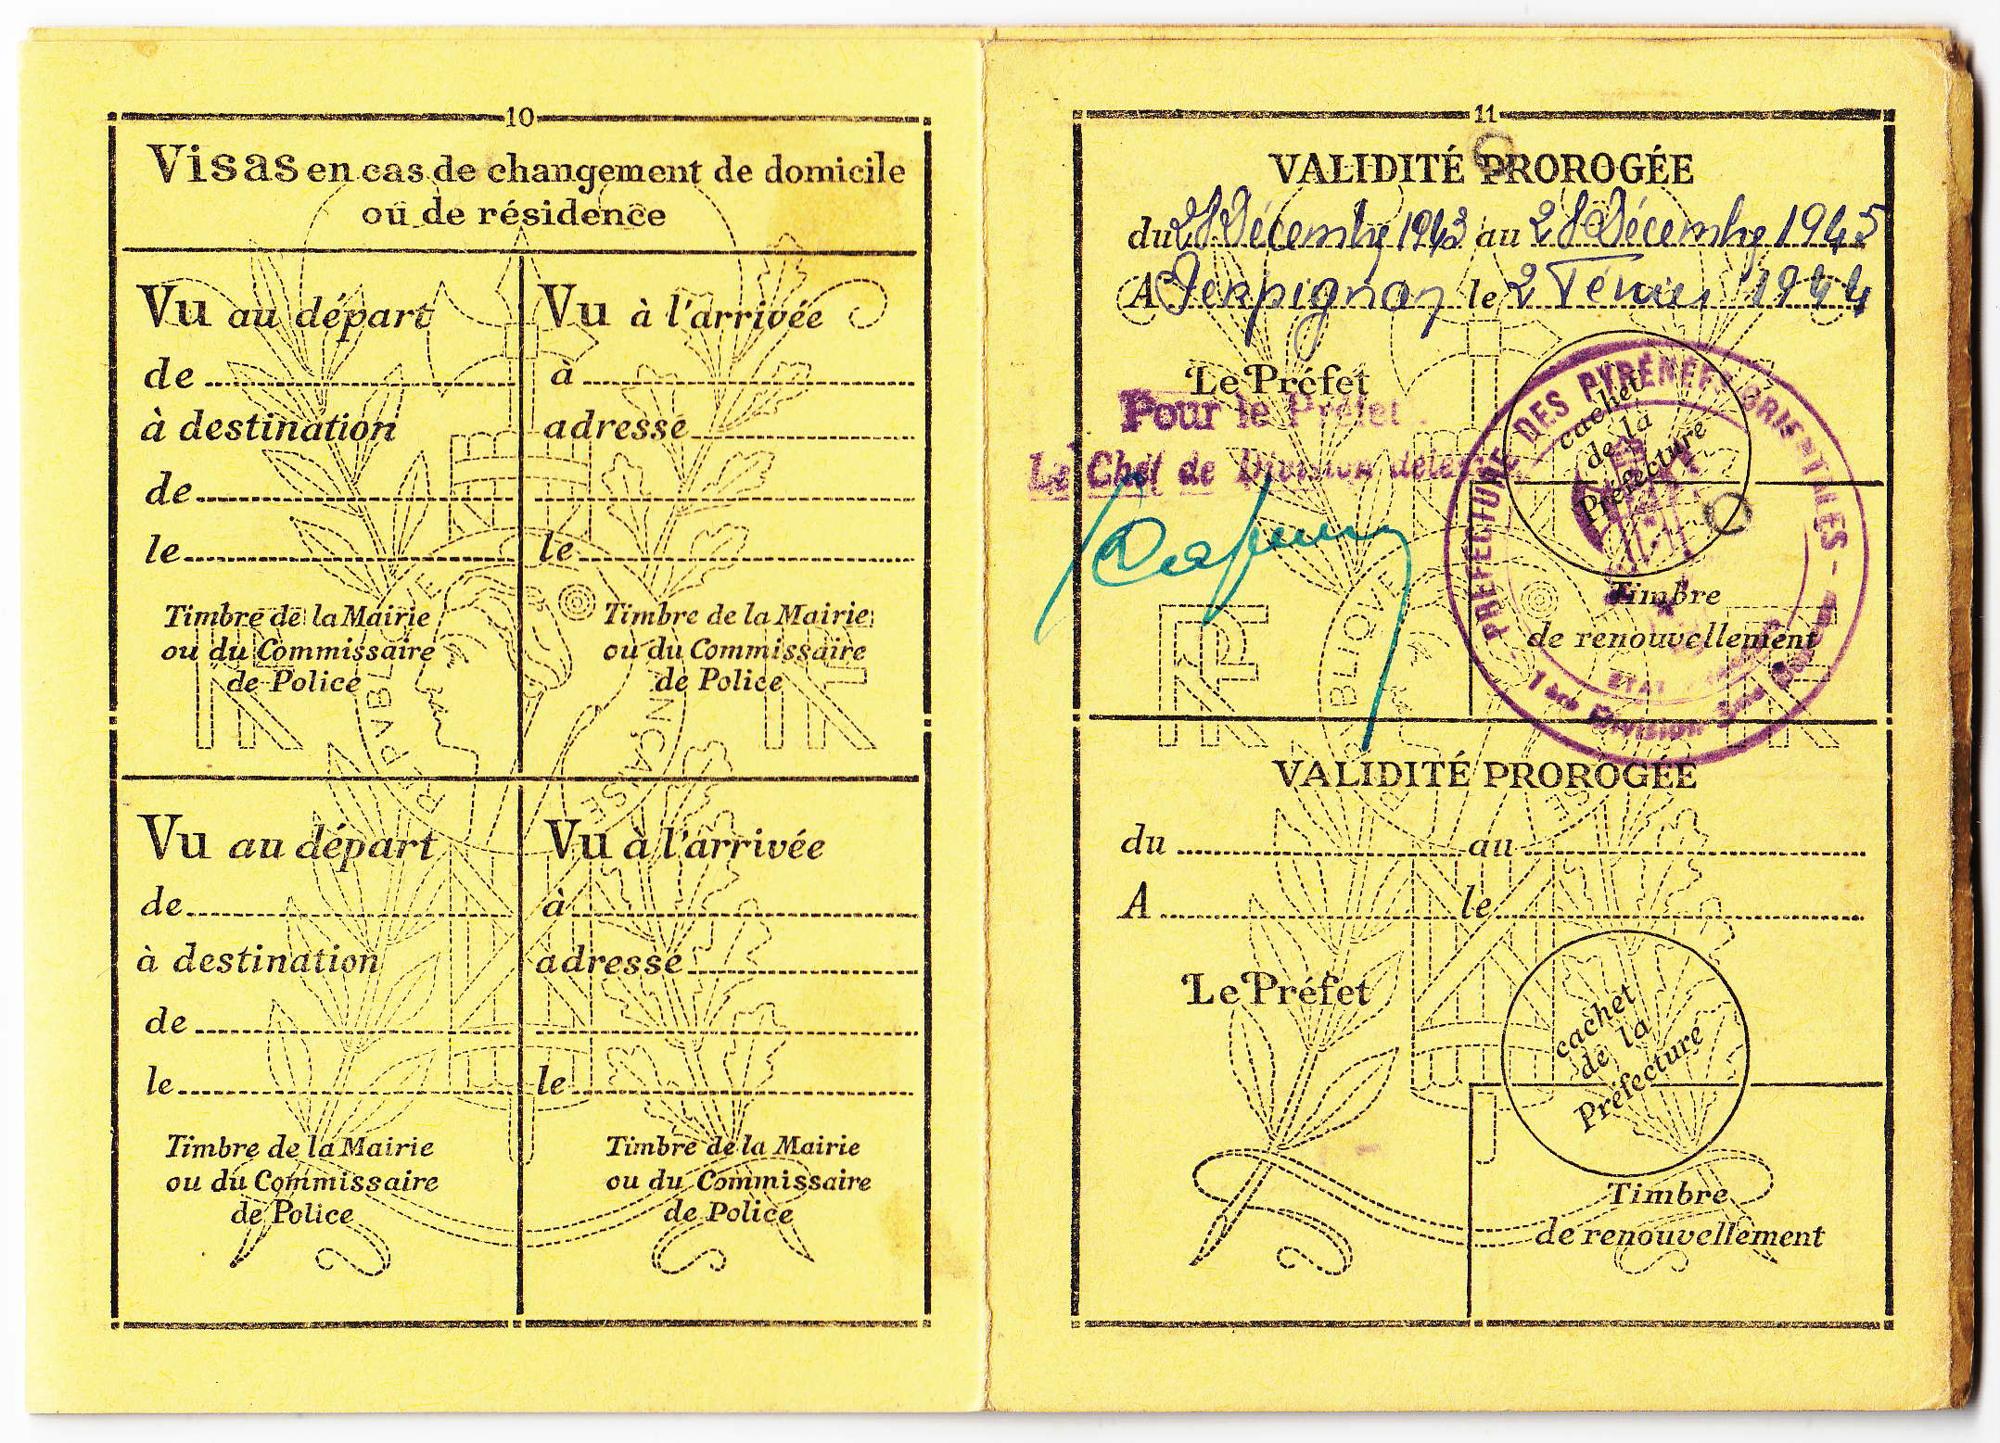 10
Visas en cas de changement de domicile
ou de résidence
Vu au départ
de
à destination
de
le
Timbre de la Mairie
ou du Commissaire
de Police
Vu à l'arrivée
à
adresse
le
Timbre de la Mairie
ou du Commissaire
de Police
Vu au départ
de
à destination
de
le
Timbre de la Mairie
ou du Commissaire
de Police
Vu à l'arrivée
à
adresse
le
Timbre de la Mairie
ou du Commissaire
de Police
RF
RF
11
VALIDITÉ PROROGÉE
du 28 Décembre 1943 au 28 Décembre 1945
A Perpignan le 2 1944
Le Préfet
Pour le Préfet
Le Chef de Division délégué
cachet
de la
Préfecture
PRÉFECTURE DES PYRÉNÉES-ORIENTALES
1ère Division
ETAT
Timbre
de renouvellement
RF
RF
VALIDITÉ PROROGÉE
du au
A le
Le Préfet
cachet
de la
Préfecture
Timbre
de renouvellement